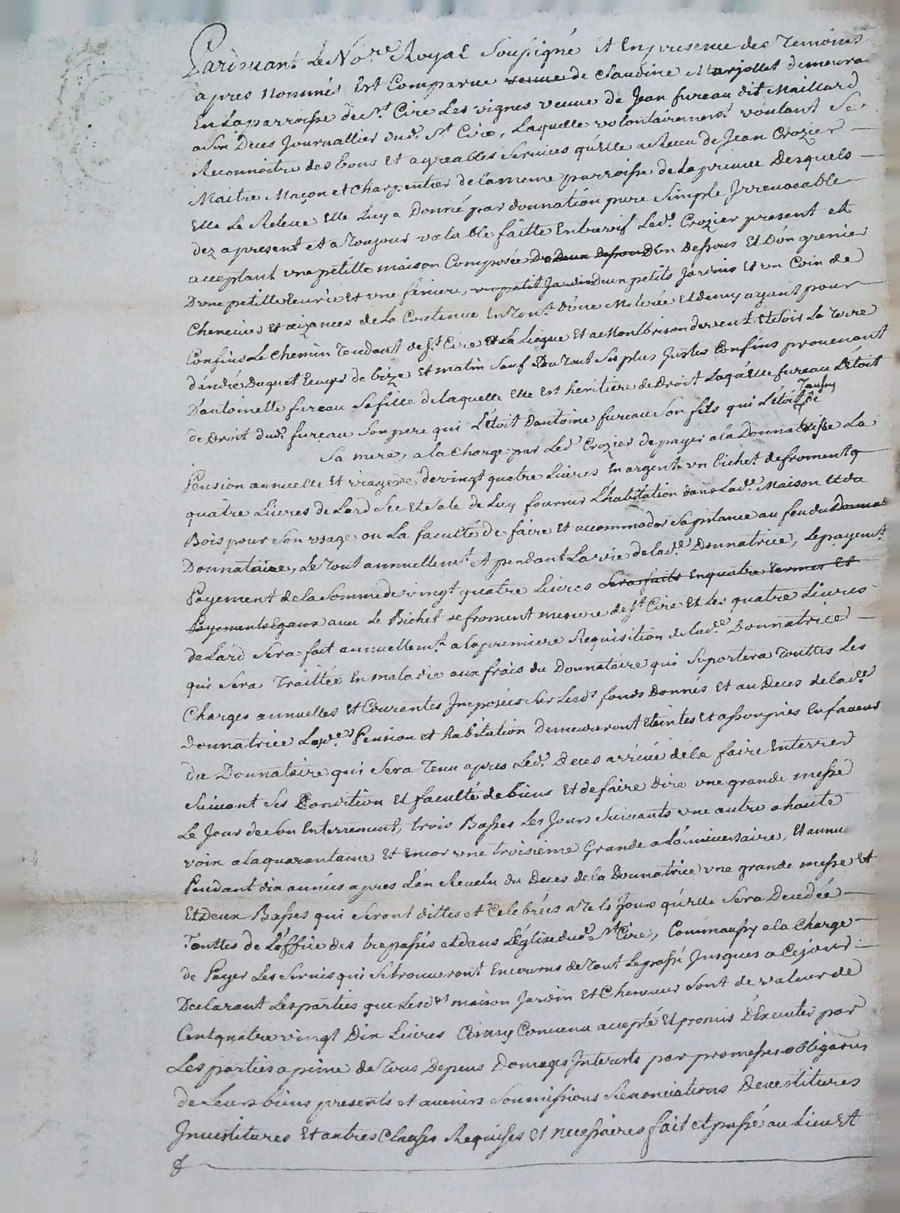 Pardevant Le No.re Royal Soussigné Et En presence des Temoins
apres Nommés Est Comparue veuve de Claudine Marjollet demeura
En La parroisse de St. Ciré Les vignes veuve de Jean fureau dit Maillard
a Son Deces Journallier dud. St. Cire, Laquelle volontairement voulant Se
Reconnoitre des bons et agreables Services quelle a Receu de Jean Crozier
Maitre Maçon et Charpentier de la meme parroisse de La prieuve Desquels
Elle Le Releve Elle Luy a Donné par donnation pure Simple Irrevocable
dez apresent et a Toujour valable faitte Entrevif Led. Crozier present et
acceptant une petitte maison Composée D'un Dessous et D'un grenier
D'une petitte Ecurie et une feniere, un petits Jardins et un Coin de
Cheneviere Et aizances de La Contenue En Tout d'une Meterée Et demy ayant pour
Confins Le Chemin Tendant de St. Cire a La Liegue Et a Montbrison de vent Et soir La Terre
d'andré Duguet Leuys de bize Et matin Sauf Du Tout Ses plus Justes Confins provenant
D'antoinette fureau Sa fille de laquelle Elle Est heritiere de Droit Laquelle fureau L'étoit
de Droit dud. fureau Son pere qui L'etoit D'antoine fureau Son fils qui L'étoit de
Sa mere, a la Charge par Led. Crozier de payer a la Donnatrisse La
Pension annuelle Et viagere de vingt quatre Livres En argent un bichet de froment
quatre Livres de Lard Sec Et Salé de Luy fournir L'habitation dans Lad. Maison Et du
Bois pour Son usage ou La faculté de faire Et accommoder Sa pitance au feu du
Donnataire, Le Tout annuellem.t et pendant La vie de Lad. Donnatrice, Le payem.t
Payement de la Somme de vingt quatre Livres Sera fait En quatre Termes Et
Payements Egaux avec Le Bichet de froment mesure de St. Cire Et Les quatre Livres
de Lard Sera fait annuellem.t a la premiere Requisition de Lad. Donnatrice
qui Sera Traittée En maladie aux frais du Donnataire qui Suportera Touttes Les
Charges annuelles Et Courantes Imposées Sur Lesd. fonds Donnés Et au Deces de Lad.
Donnatrice Lad. Pension et Habitation Demeureront Eteintes Et assoupies En faveur
du Donnataire qui Sera Tenu apres Led. Deces arrivé de La faire Enterrer
Suivant Ses Condition Et faculté de biens Et de faire Dire une grande messe
Le Jour de Son Enterrement, trois Basses Les Jours Suivants une autre a haute
voix a la quarantaine Et Encor une troisieme Grande a L'anniversaire, Et annu
Pendant dix années apres L'an Revolu du Deces de la Donnatrice une grande messe Et
Et Deux Basses qui Seront dittes et Celebrés a Tels Jours qu'elle Sera Decedée
Touttes de L'office des trepassés et dans L'Eglise dud. St. Cire, Comm'aussy a la Charge
de Payer Les Servis qui Se trouveront Encourus de Tout Le passé Jusques a Ce jour
Declarant Les parties que Lesd. maison Jardin Et Chenevier Sont de valeur de
Cent quatre vingt Dix Livres Ainsy Convenu accepté Et promis D'Executer par
Les parties a peine de Tous Depens Domages Interets par promesses obligations
de Leurs biens presents et avenirs Soumissions Renonciations Devestitures
Investitures Et autres Clauses Requises Et necessaires fait et passé au Lieu Et